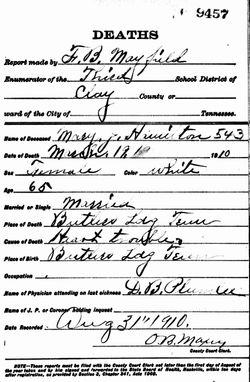 9457
DEATHS
Report made by F. B. Mayfield
Enumerator of the Third School District of
Clay County or
ward of the City of Tennessee.
Name of Deceased Mary J. 543
Date of Death 1910
Sex Female Color White
Age 65
Married or Single Married
Place of Death Butlers Ldg Tenn
Cause of Death Heart trouble
Place of Birth Butlers Ldg Tenn
Occupation
Name of Physician attending on last sickness D. B.
Name of J. P. or Coroner holding inquest
Date Recorded Aug 31st 1910.
O B Maxey
County Court Clerk.
NOTE—These reports must be filed with the County Court Clerk not later than the first day of August of
the year taken and by him signed and forwarded to the State Board of Health, Nashville, within ten days
after registration, as provided by Section 2, Chapter